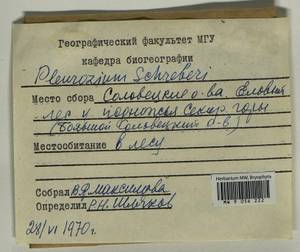 Географический факультет МГУ
кафедра биогеографии
Pleurozium Schreberi
Место сбора Соловецкие о-ва. Еловый
лес у подножья Секир. горы
(Большой Соловецкий о-в)
Местообитание в лесу
Собрал В.Д. Максимова
Определил Р.Н. Шляков
28/VI 1970 г.
Herbarium MW, Bryophyta
MW 9 054 222